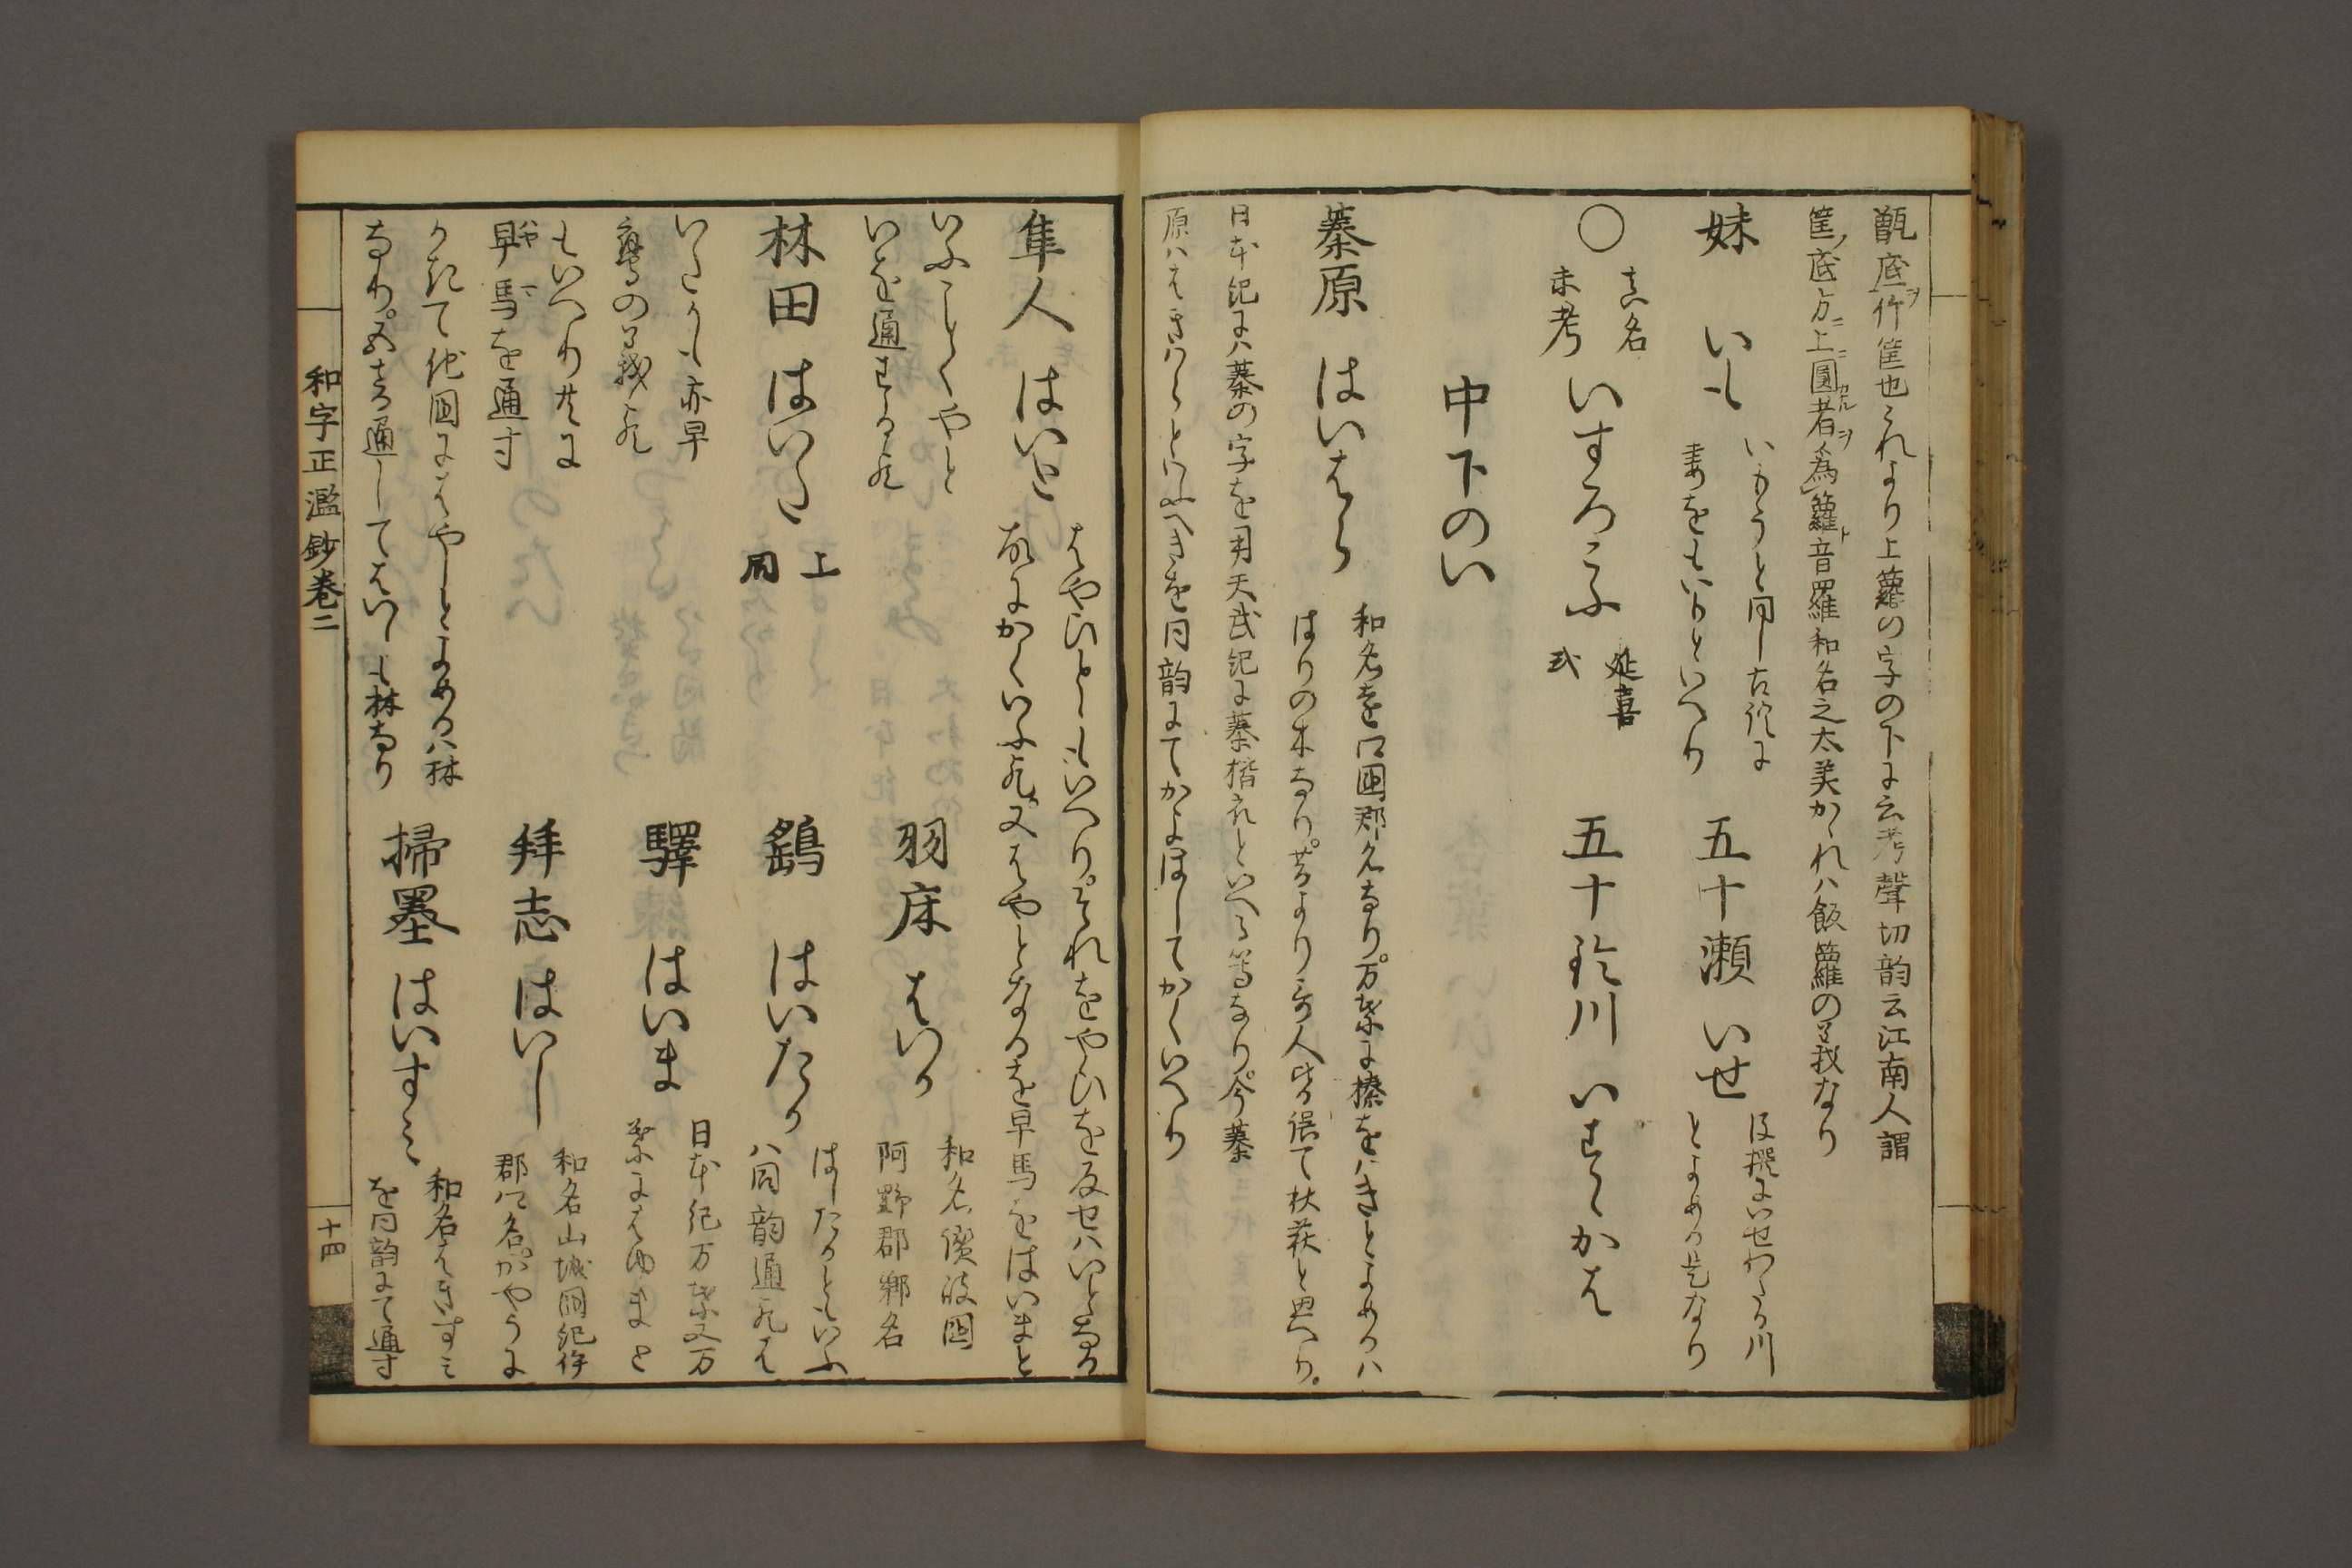 甑底竹筐也これより上籮の字の下に云考聲切韵云江南人謂
筐底方上圓者為籮音羅和名之太美かゝれハ飯籮の義なり
妹 いも
いもうと同し古語に
妻をもいもといへり
五十瀬 いせ
後撰にいせわたる川
とよめる是なり
〇
真名
未考
いすろこふ
延喜
式
五十鈴川 いすゝかは
中下のい
蓁原 はいはら
和名遠江国郡名なり。万葉に榛をはきとよめるハ
はりの木なり。昔より哥人皆誤て秋萩と思へり。
日本紀にハ蓁の字を用天武紀に蓁揩衣といへる等なり。今蓁
原ハはきはらといふへきを同韵にてかよはしてかくいへり
隼人 はいと
はやひとゝもいへり。それをやひを反せハいとなる
故にかくいふ歟。又はやとなるを早馬をはいまと
いふことくやと
いを通する歟
羽床 はいか
和名讃岐国
阿野郡郷名
林田 はいた
上
同
鷂 はいたか
はしたかともいふ
ハ同韵通歟は
いたかも亦早
鷹の義歟
驛 はいま
日本紀万葉又万
葉にはゆまと
もいへり共に
早馬を通す
拝志 はいし
和名山城国紀伊
郡の名。かやうに
かきて他国にはやしとよめるハ林
なり。五音通してはいしも林なり
掃墨 はいすミ
和名はきすミ
を同韵にて通す
和字正濫鈔卷二
十四